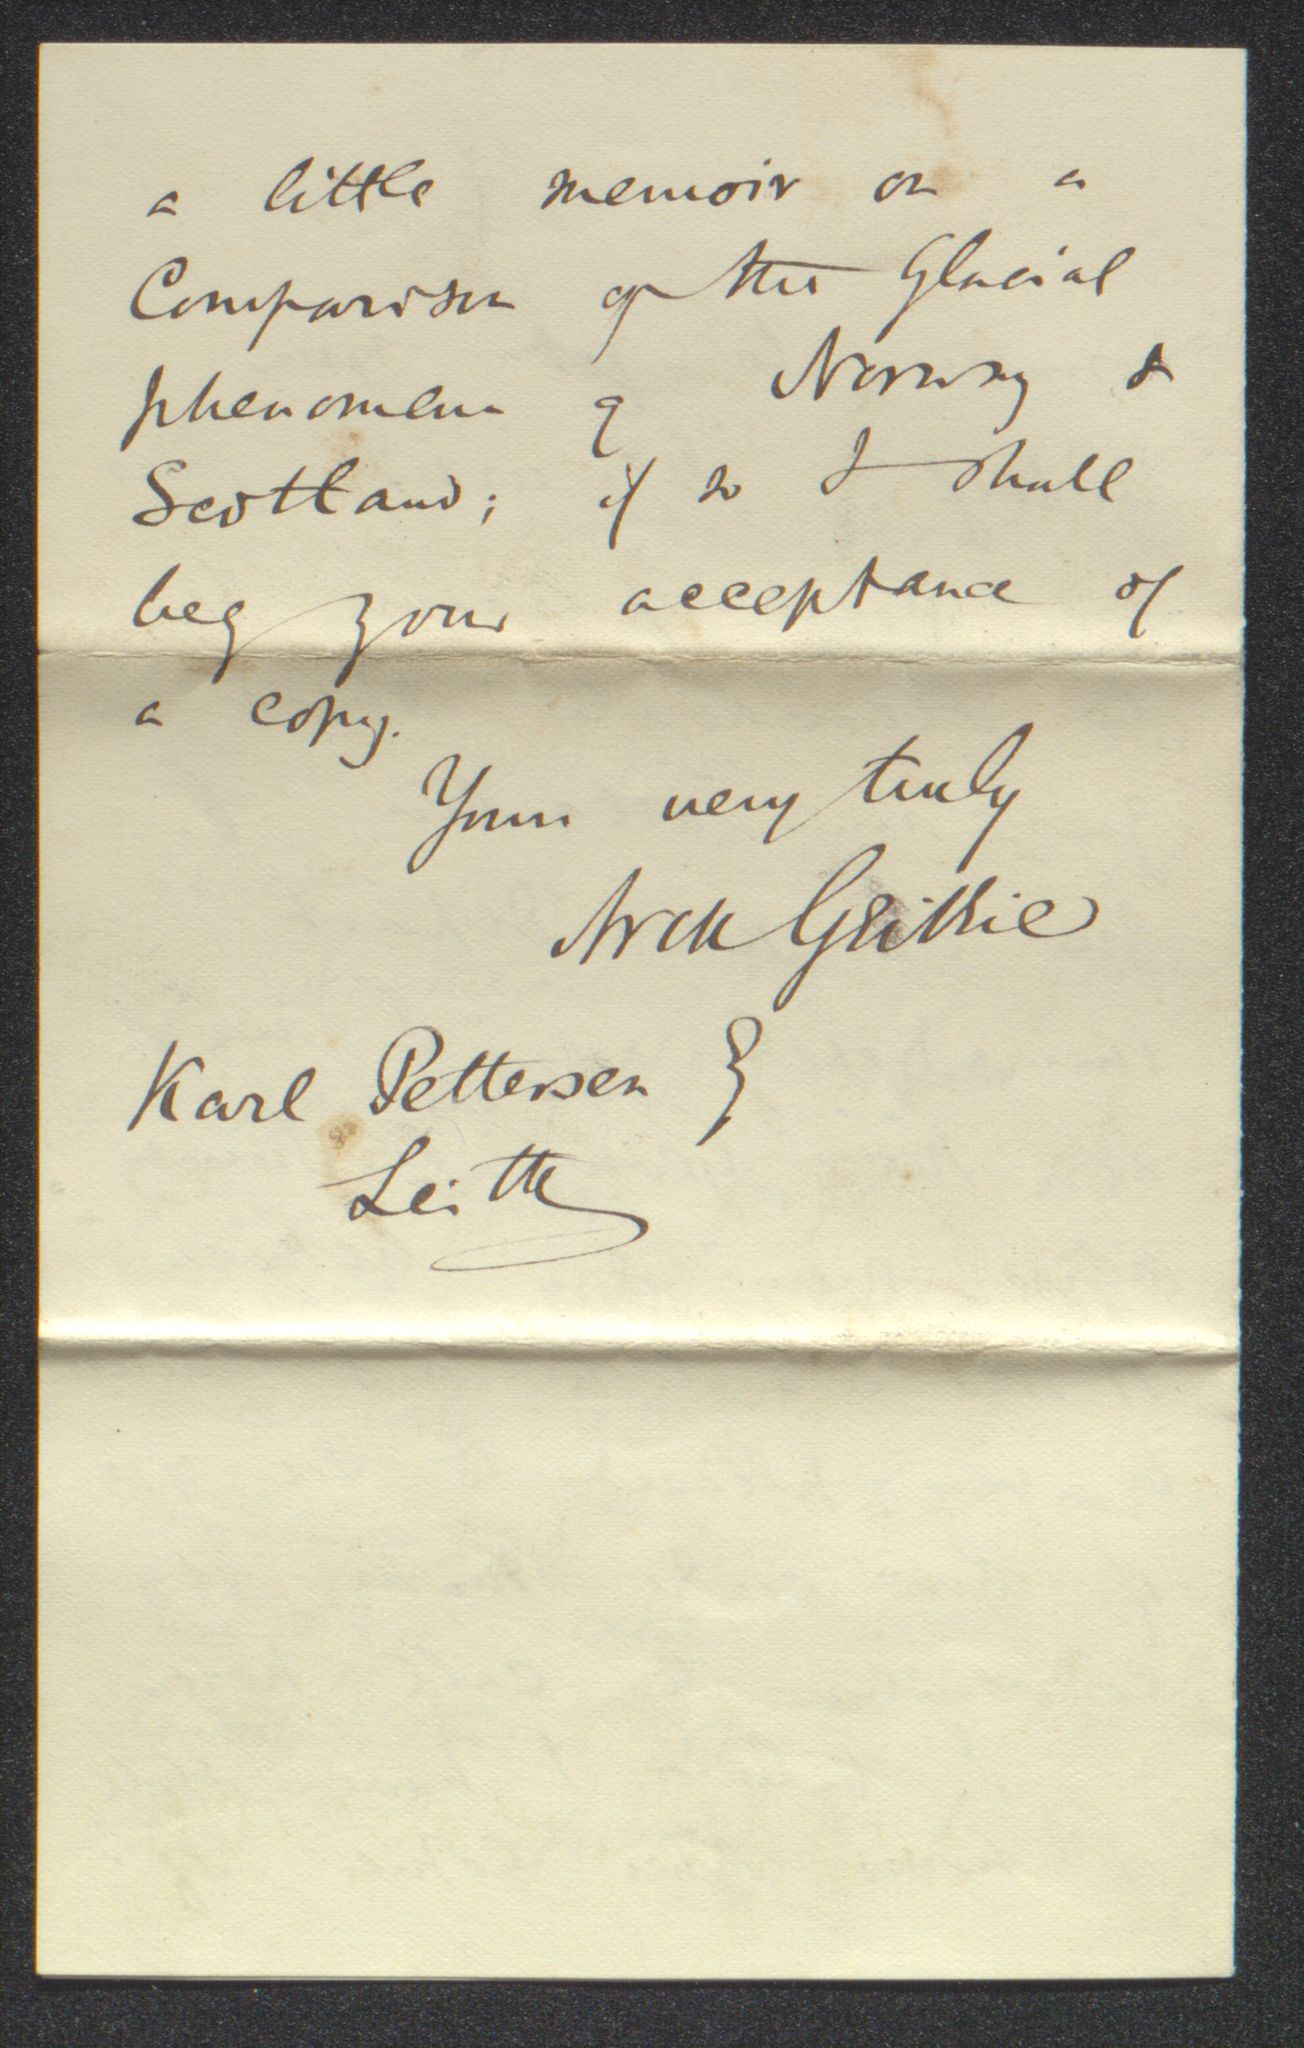 a little memoir on a
Comparison of the Glacial
phenomena of Norway &
Scotland; if so I shall
beg your acceptance of
a copy.
Yours very truly
Arch Geikie
Karl Pettersen
Leith